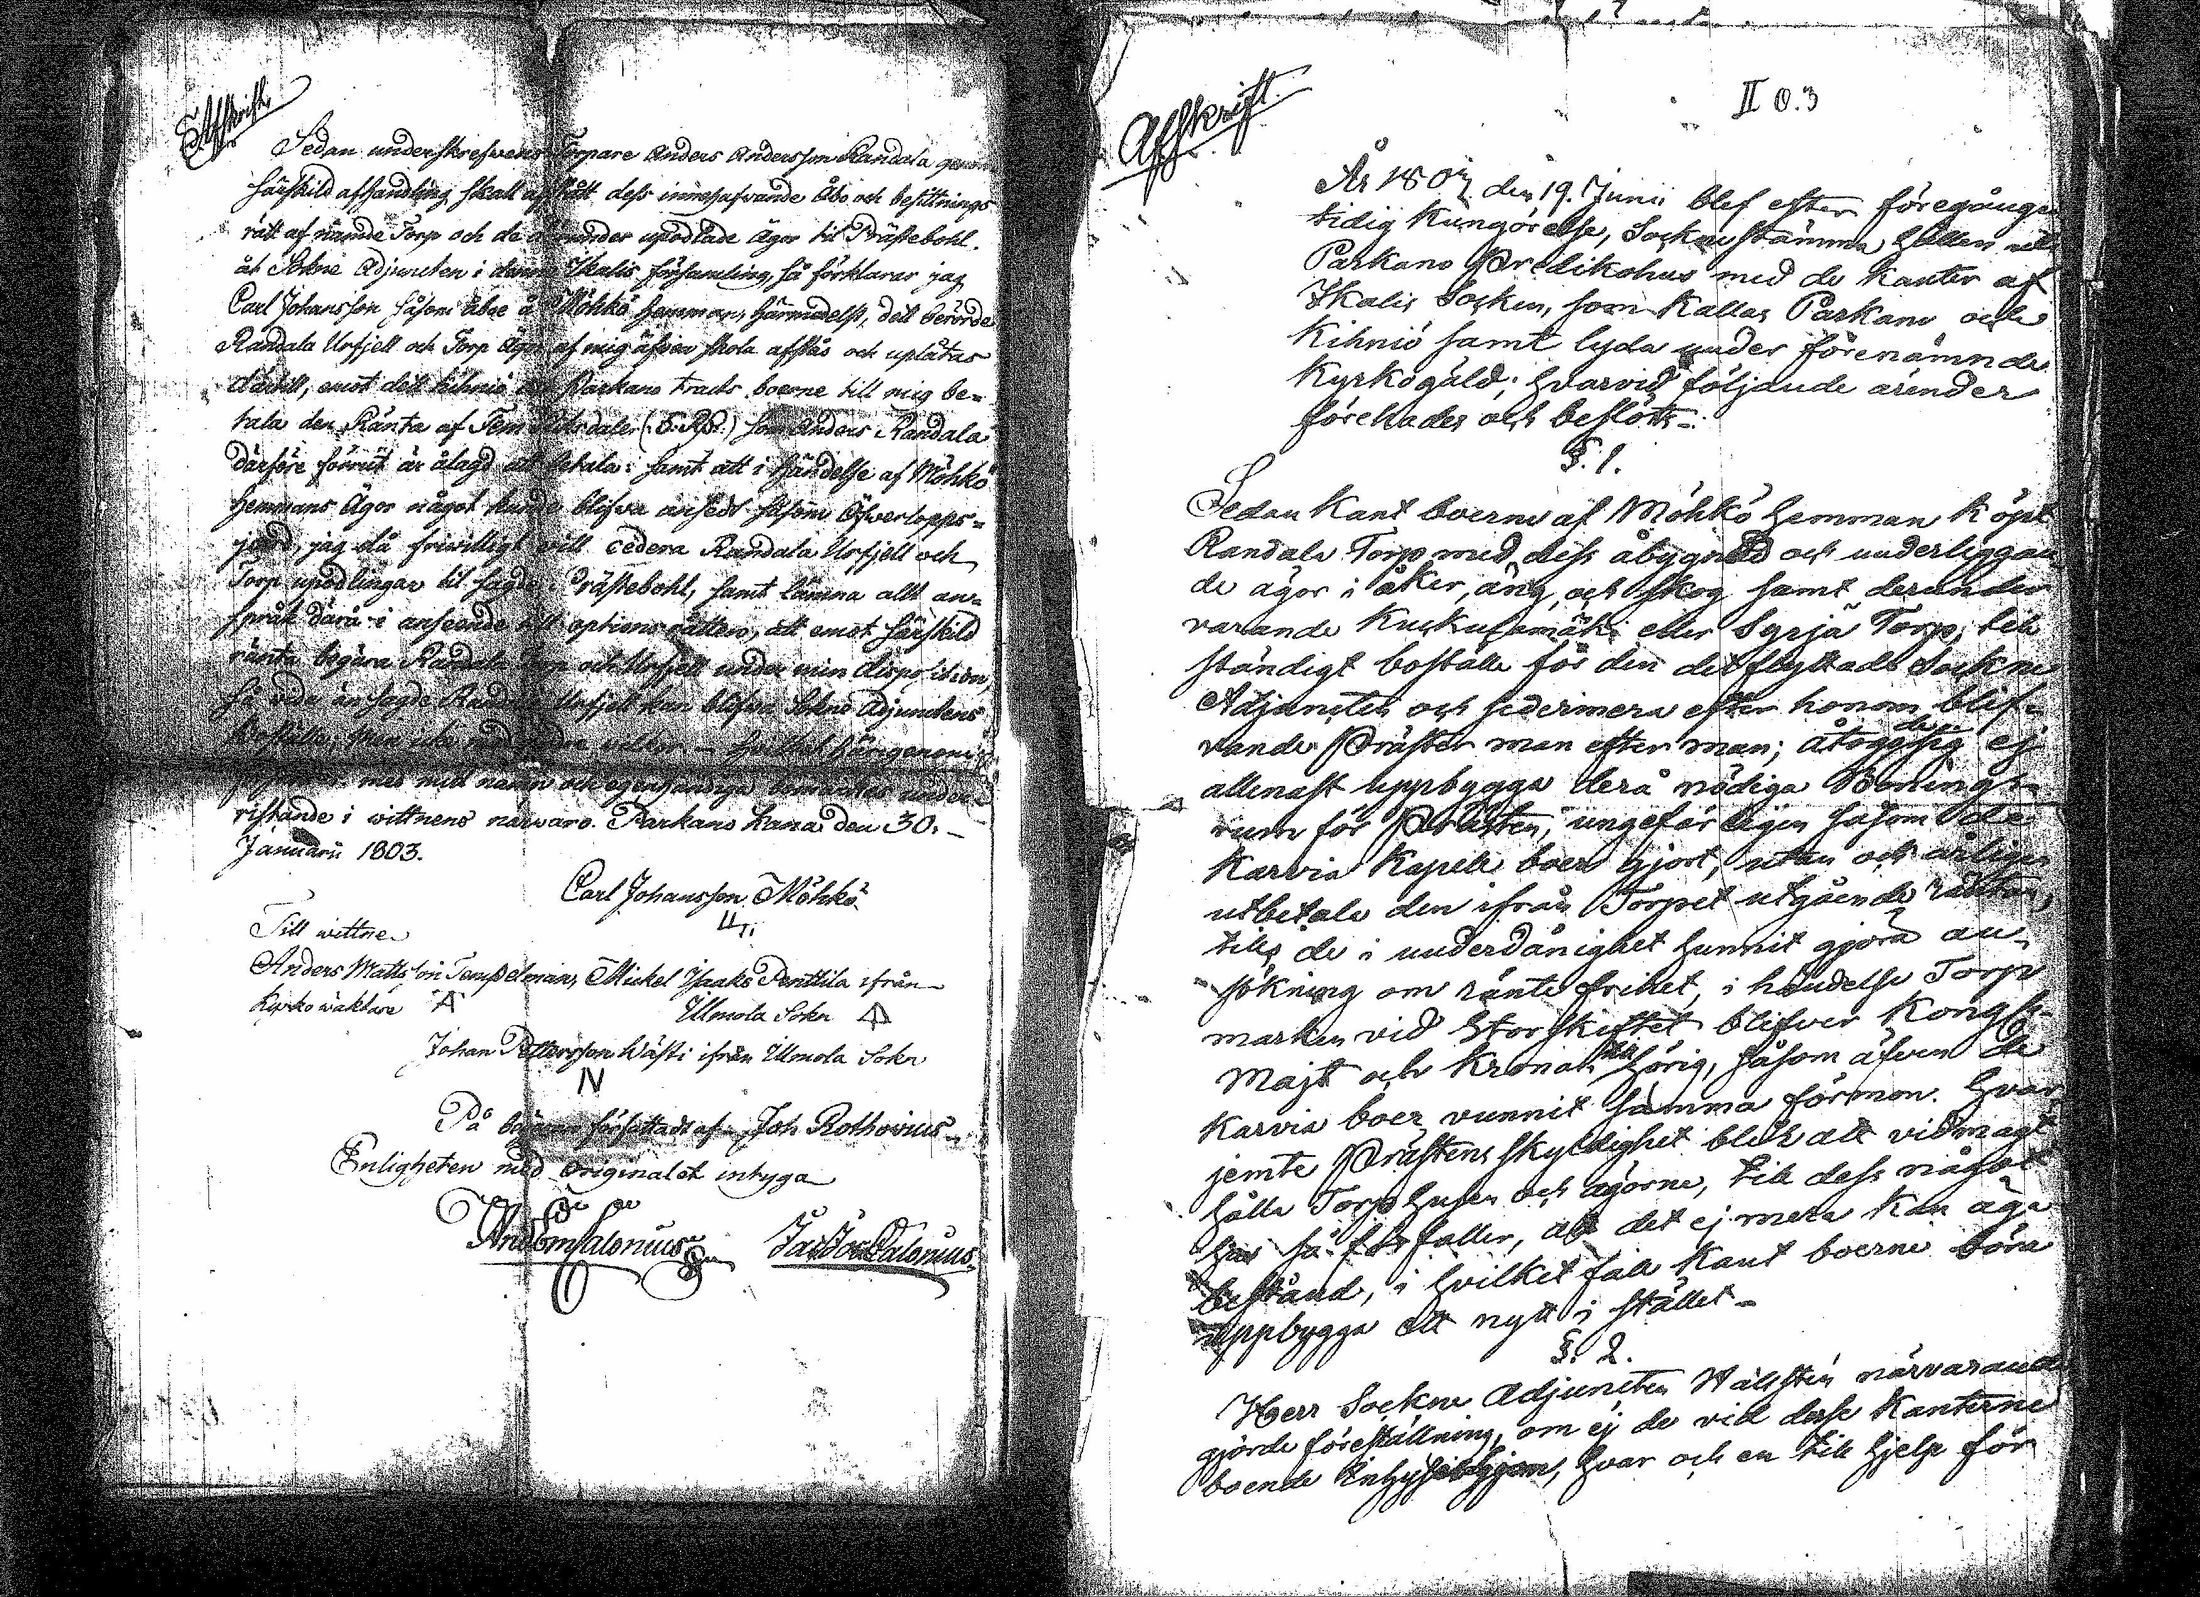 Afskrift
Sedan underskrefwens Torpare Anders Andersson Randala genom
särskild afhandling skall afstått dess innehafvande Åbo och besittnings
rätt af nämde Torp och de derunder upodlade Ägor til Prästebohl
åt Sokne Adjuncten i denna Ikalis församling, så förklarar jag
Carl Johansson såsom åboe å Möhkö hemman härmedelst, det berörde
Randala Urfjell och Torp Ägor af mig äfven skola afstås och uplåtas
därtill, emot det Kihniö och Parkano tracts boerne till mig be-
tala den Ränta af Fem Riksdaler (5. Rd.) som Anders Randala
därföre förrut är ålagd att betala: samt att i händelse af Möhkö
hemmans Ägor något kunde blifva ansedt såsom Öfverlopps-
jord, jag då friwilligt will cedera Randala Urfjell och
Torp upodlingar til sagde Prästebohl, samt lämna allt an-
språk därå i anseende till optionsrätten, att emot särskild
ränta begära Randala Torp och Urfjell under min disposition,
så vida än sagde Randala Urfjell kan blifva Sokne Adjunctens
Boställe, men icke med andra vilkor – hvilket härigenom
med mitt namn och egenhändiga bomärkes under-
ristande i wittnens närwaro. Parkano Kana den 30.
Januarii 1803.
Carl Johansson Möhkö
Till wittne
Anders Mattsson Tempelman, Mickel Isaaks Penttila ifrån
Kyrko waktare Ilmola Sokn
Johan Pettersson Wästi ifrån Ilmola Sokn
IV
På begäran författadt af Joh Rothovius
Enligheten med Originalet intyga
And Em Salonius Jac Joh Calonius
Afskrift.
II O.3
År 1807 den 19. Junii blef efter föregången
tidig Kungörelse, Sockne stämma hållen uti
Parkano Predikohus med de Kanter af
Ikalis Socken, som Kallas Parkano och
Kihniö samt lyda under förenämnde
Kyrkogäld; hvarvid följande ärender
förehades och beslöts:
§. 1.
Sedan Kant boerne af Möhkö Hemman Köpt
Randala Torp med dess åbygnad och underliggan
de ägor i åker, äng, och skog samt derunder
varande Kuckulamäki eller Syrjä Torp, till
ständigt boställe för den ditflyttade Sockne
Adjuncten och sedermera efter honom blif-
vande Präster man efter man; åtogo de sig ej
allenast uppbygga derå nödiga Bonings-
rum för Prästen, ungefärligen såsom de
Karvia Kapell boer gjort, utan och årligen
utbetala den ifrån Torpet utgående räntan,
tills de i underdånighet hunnit gjöra an-
sökning om räntefrihet, i händelse Torp
marken vid Storskiftet blifver Kongl.
Majt och Kronan tillhörig, såsom äfven de
Karvia boer vunnit samma förmon. Hvar
jemte Prästens skyldighet blir att vidmagt
hålla Torp husen och ägorne, till dess något
hus så förfaller, att det ej mera kan äga
bestånd, i hvilket fall Kant boerne böra
uppbygga ett nytt i stället –
§. 2.
Herr Sockne Adjuncten Wallstén närvarande
gjorde föreställning, om ej de vid desse Kanterne
boende Inhyseshjon, hvar och en till hjelp för